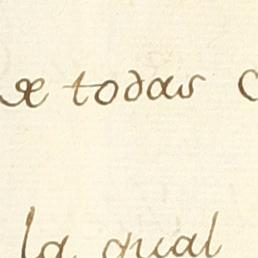 de todas
la qual